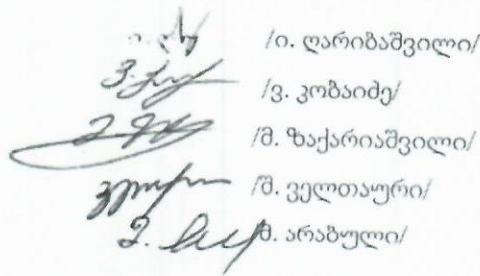 /ი. ღარიბაშვილი/
/ვ. კობაიძე/
/მ. ზაქარიაშვილი/
/შ. ველთაური/
მ. არაბული/